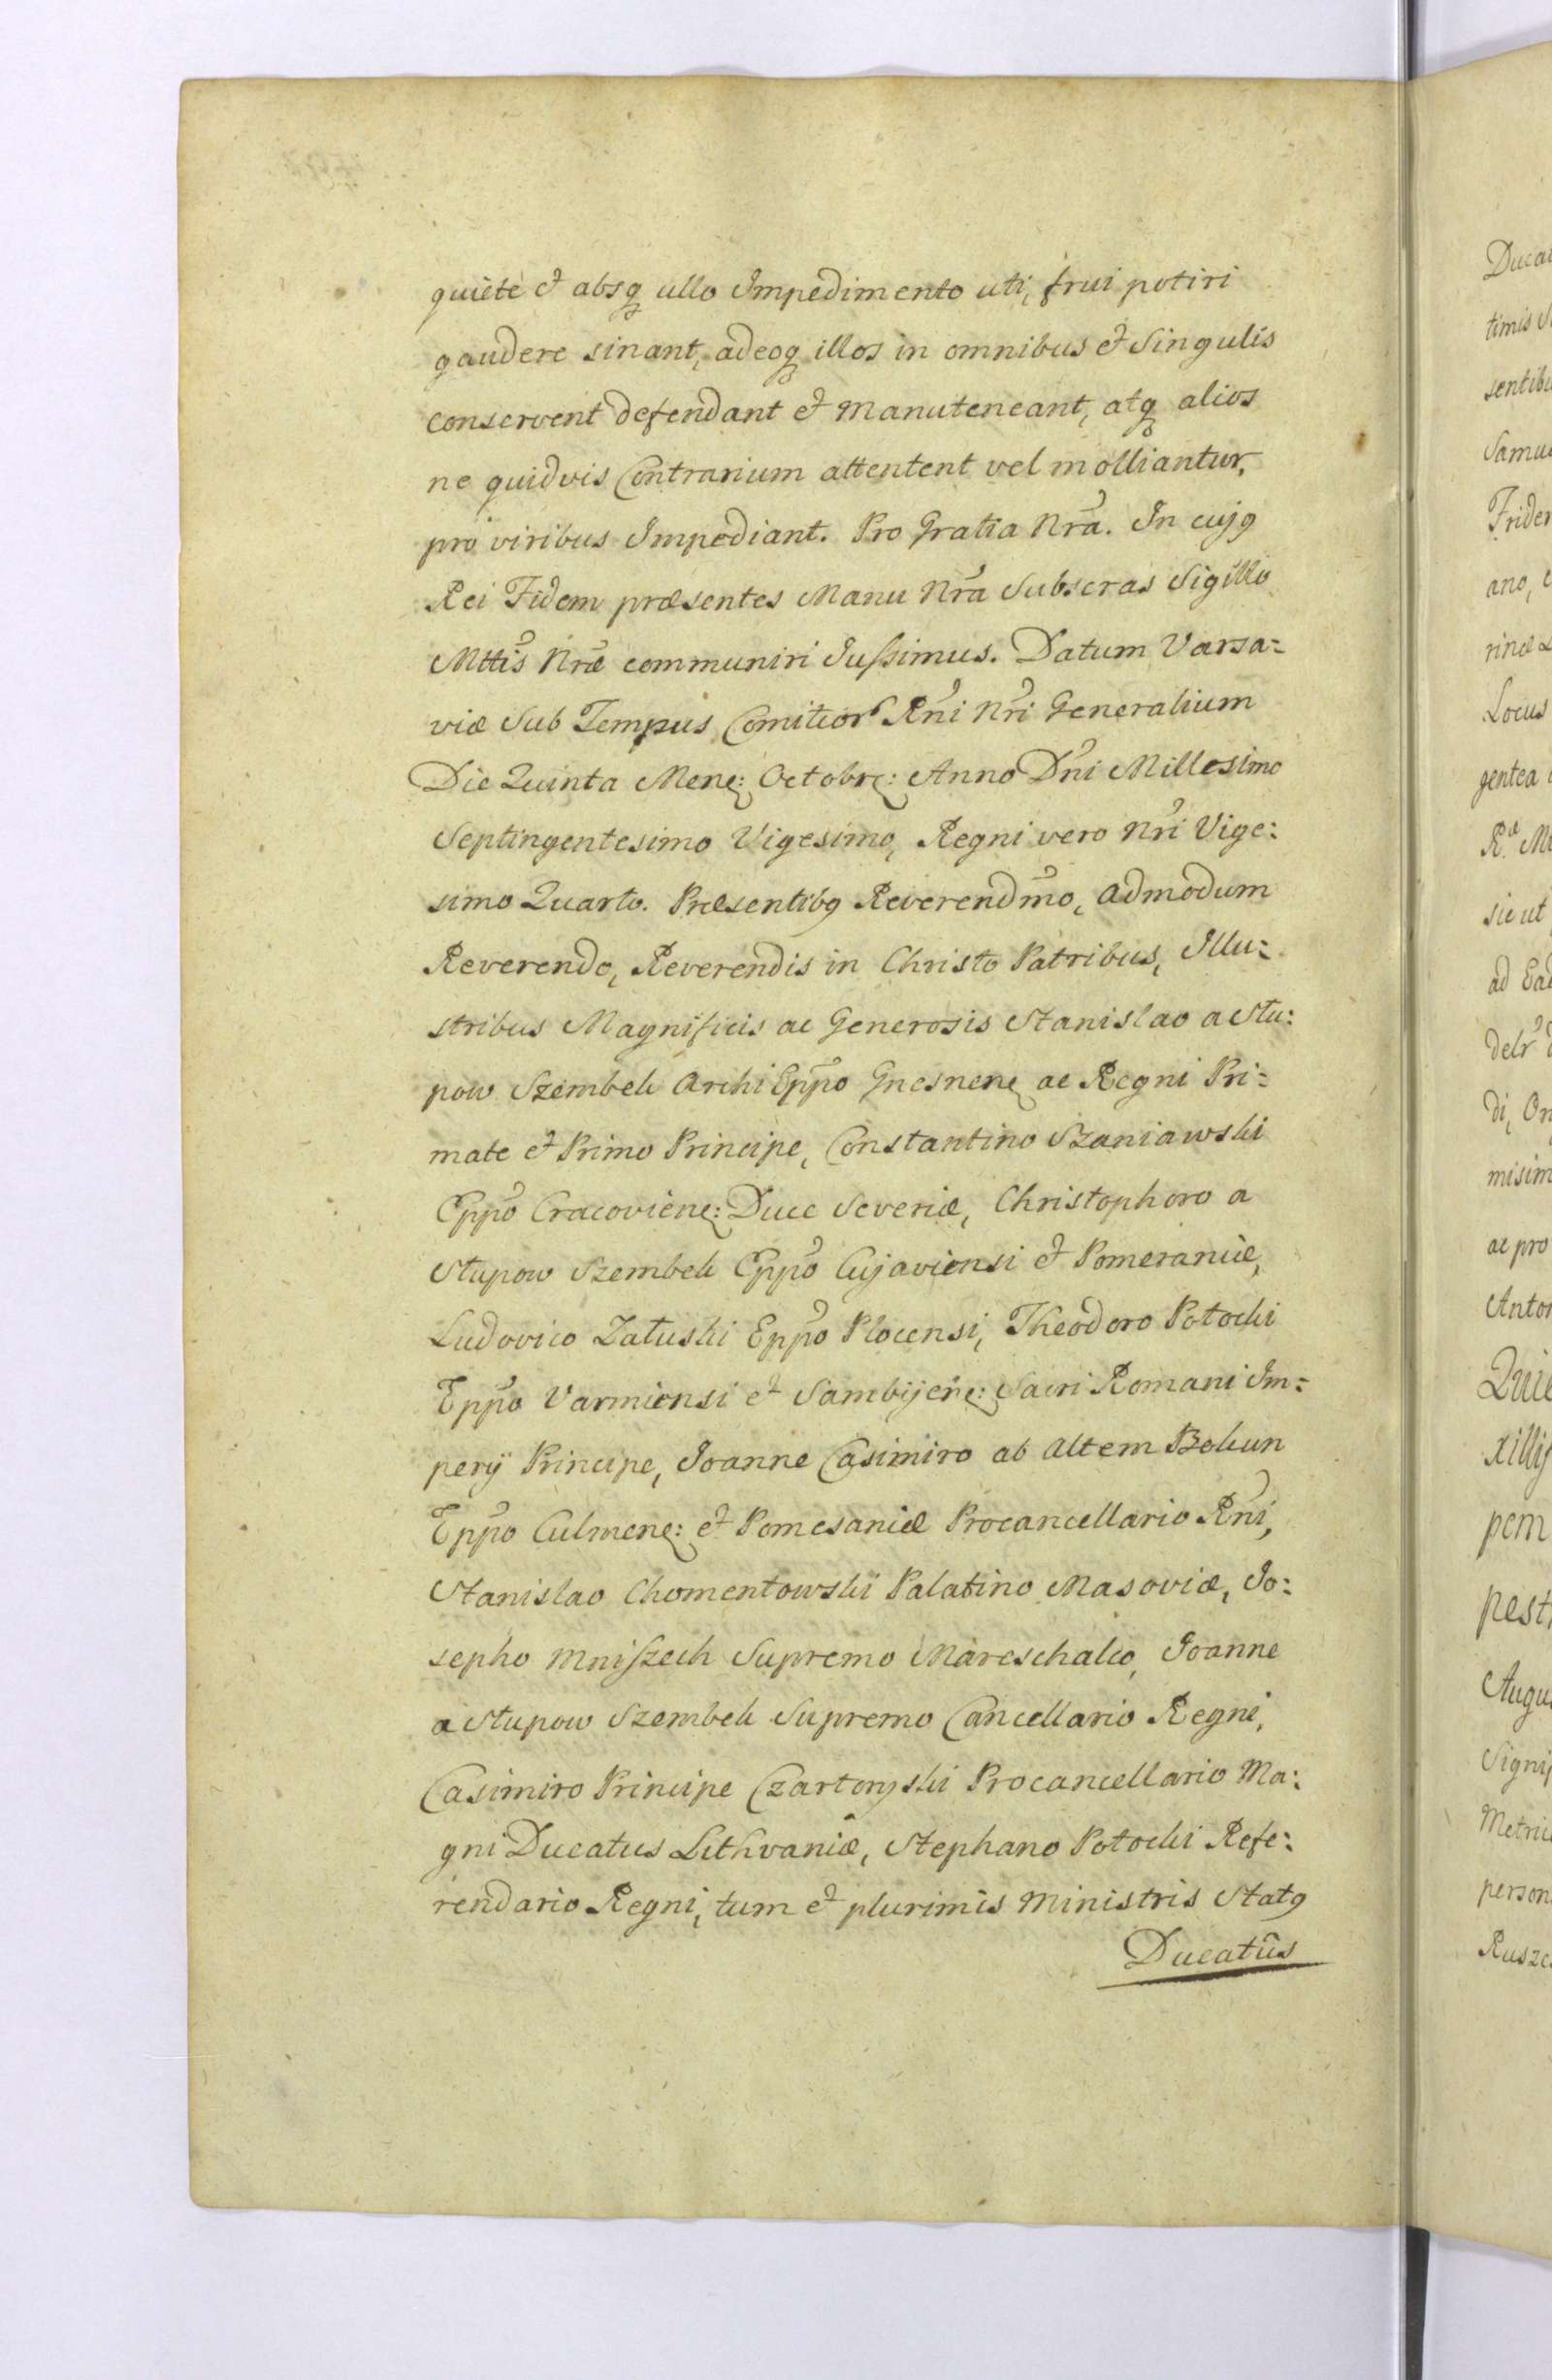 quiete et absq ullo Impedimento uti, frui potiri
gaudere sinant, adeoq illos in omnibus et Singulis
conservent defendant et Manuteneant, atq alios
ne quidvis Contrarium attentent vel molliantur,
pro viribus Impediant. Pro Gratia Nra. In cujq
Rei Fidem præsentes Manu Nra Subscras Sigillo
Mttis Nræ communiri Jussimus. Datum Varsa=
viæ Sub Tempus Comitior Rni Nri Generalium
Die Quinta Mens: Octobrs: Anno Dni Millesimo
Septingentesimo Vigesimo, Regni vero Nri Vige:
simo Quarto. Præsentibq Reverendmo, admodum
Reverendo, Reverendis in Christo Patribus, Illu=
stribus Magnificis ac Generosis Stanislao a Stu:
pow Szembek Archi Eppo Gnesnens ac Regni Pri=
mate et Primo Principe, Constantino Szaniawski
Eppo Cracoviens: Duce Severiæ, Christophoro a
Stupow Szembek Eppo Cujaviensi et Pomeraniæ,
Ludovico Załuski Eppo Plocensi, Theodoro Potocki
Eppo Varmiensi et Sambijens: Sacri Romani Im=
perij Principe, Joanne Casimiro ab Altem Bokun
Eppo Culmens: et Pomesaniæ Procancellario Rni,
Stanislao Chomentowski Palatino Masoviæ, Jo:
sepho Mniszech Supremo Mareschalco, Joanne
a Stupow Szembek Supremo Cancellario Regni,
Casimiro Principe Czartoryski Procancellario Ma:
gni Ducatus Lithvaniæ, Stephano Potocki Refe:
rendario Regni, tum et plurimis Ministris Statq
Ducatûs